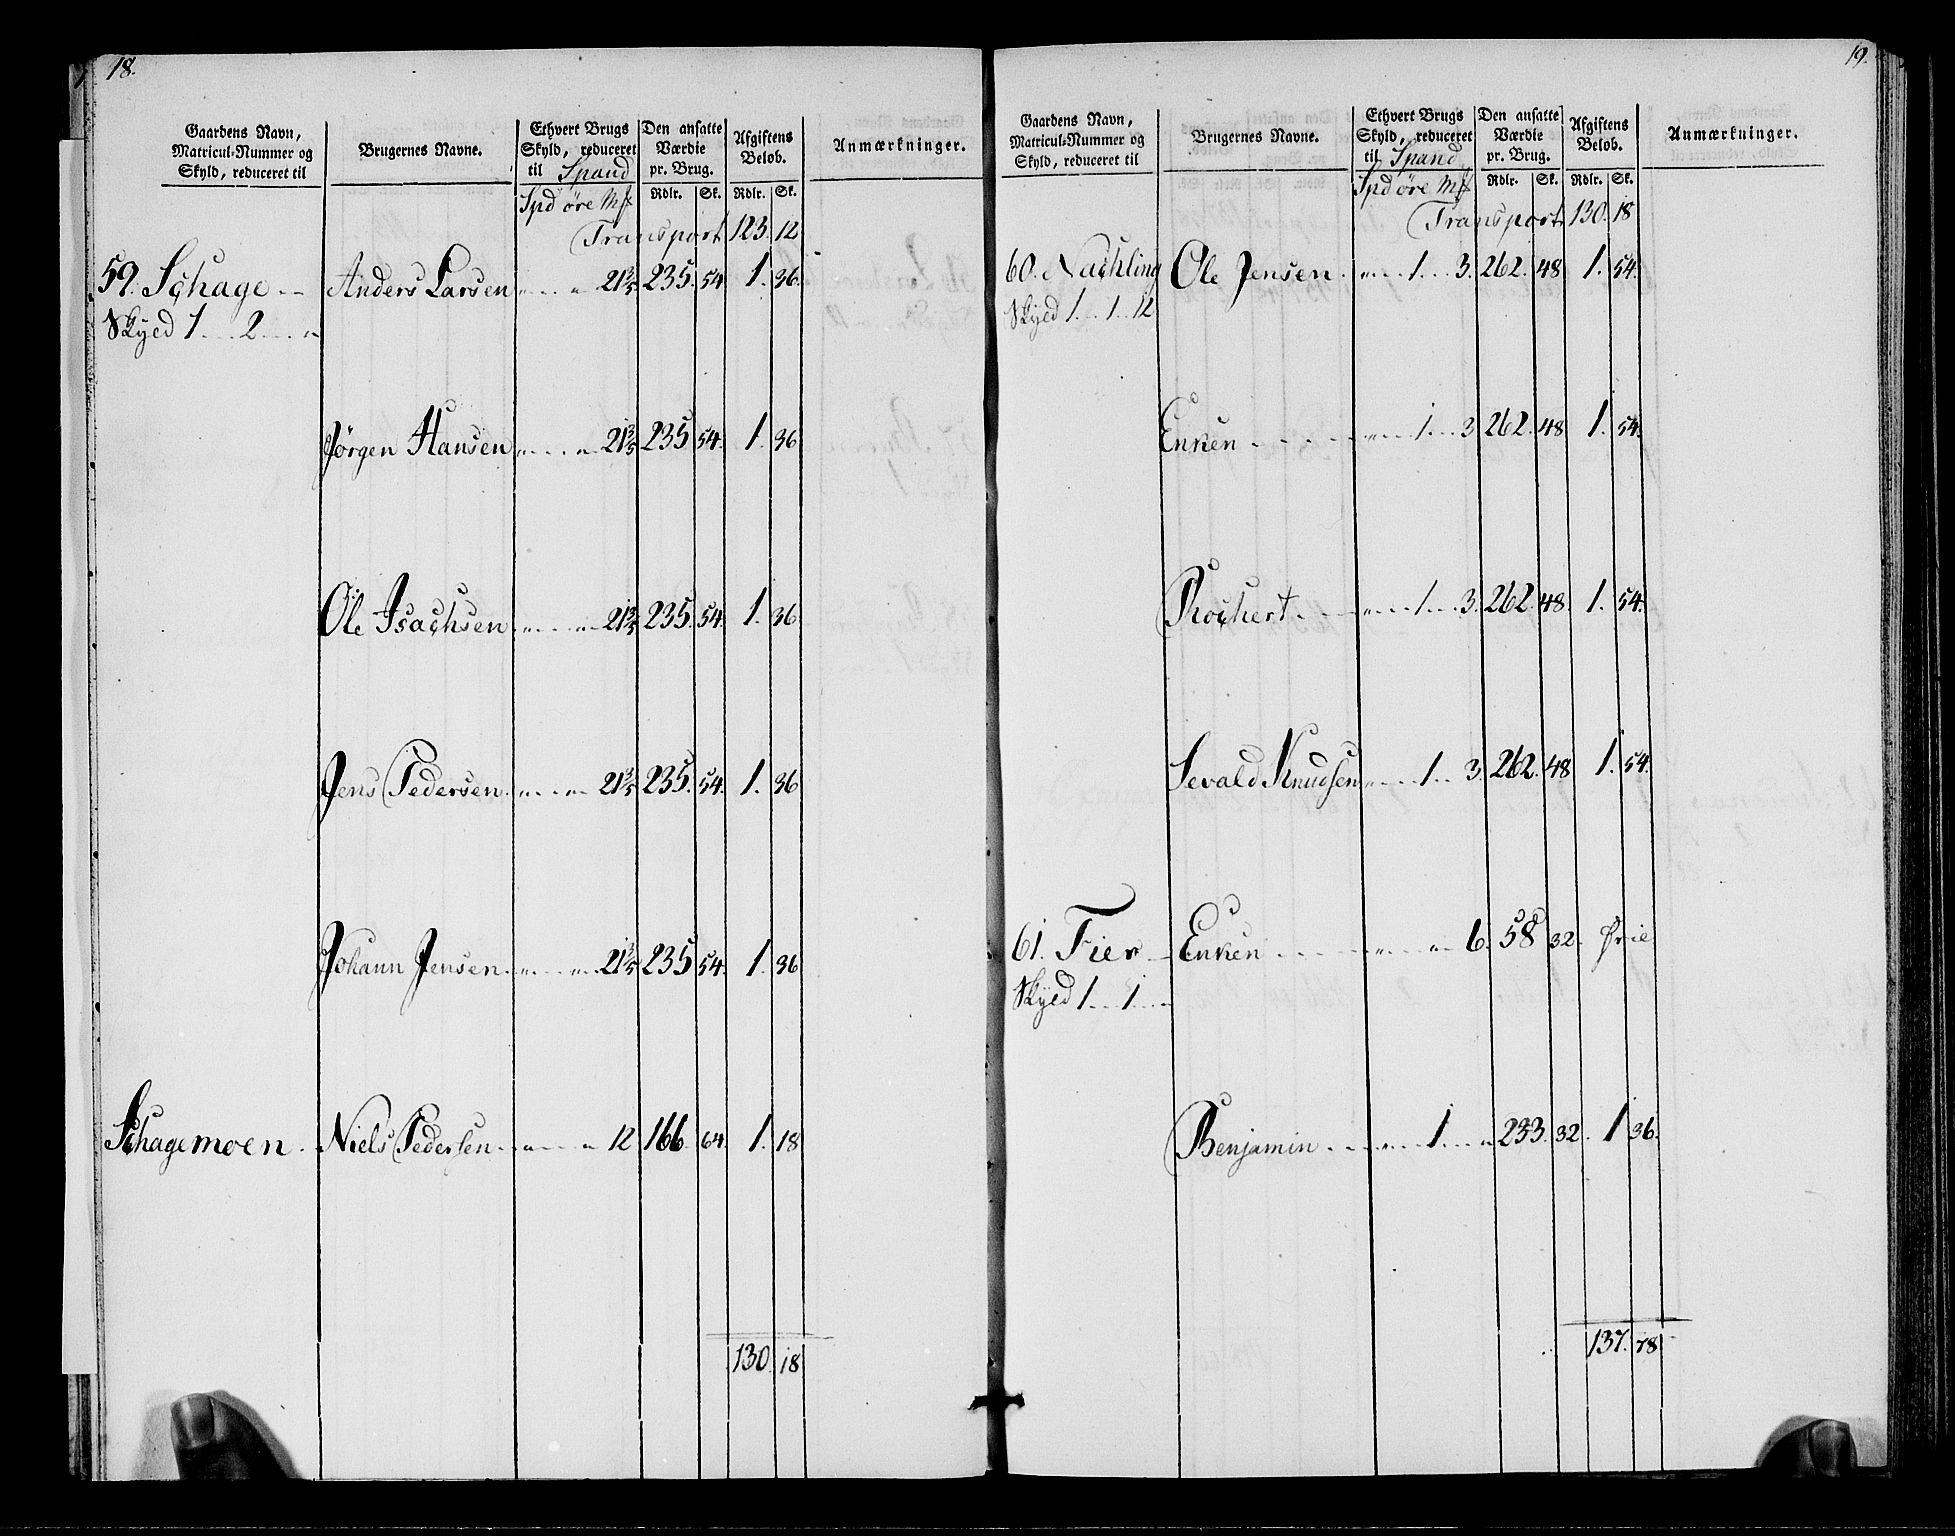 18.
Gaardens Navn, Matricul-Nummer og Skyld, reduceret til
Brugernes Navne.
Ethvert Brugs Skyld, reduceret til Spand
Spd øre Mk
Den ansatte Værdie pr. Brug.
Rdlr. Sk.
Afgiftens Beløb.
Rdlr. Sk.
Anmærkninger.
Transport 123. 12
59. Schage Anders Larsen " " 21 3/5 235. 54. 1. 36
Skyld 1 2 "
Jørgen Hansen " " 21 3/5 235 54. 1. 36
Ole Isachsen " " 21 3/5 235. 54 1. 36
Jens Pedersen " " 21 3/5 235. 54. 1. 36
Johann Jensen " " 21 3/5 235 54. 1. 36
Schagemoen. Niels Pedersen " " 12 166. 64. 1. 18
130. 18
19.
Gaardens Navn, Matricul-Nummer og Skyld, reduceret til
Brugernes Navne.
Ethvert Brugs Skyld, reduceret til Spand
Spd øre Mk
Den ansatte Værdie pr. Brug.
Rdlr. Sk.
Afgiftens Beløb.
Rdlr. Sk.
Anmærkninger.
Transport 130. 18
60. Nachling Ole Jensen " 1 3. 262. 48 1. 54.
Skyld 1 1 12
Enken " 1 3 262. 48 1. 54.
Rochert " 1 3. 262. 48. 1. 54.
Sevald Knudsen " 1 3. 262. 48 1. 54.
61. Fier Enken " " 6. 58 32. Frie
Skyld 1 1 "
Benjamin " 1 " 233. 32. 1 36.
137. 78